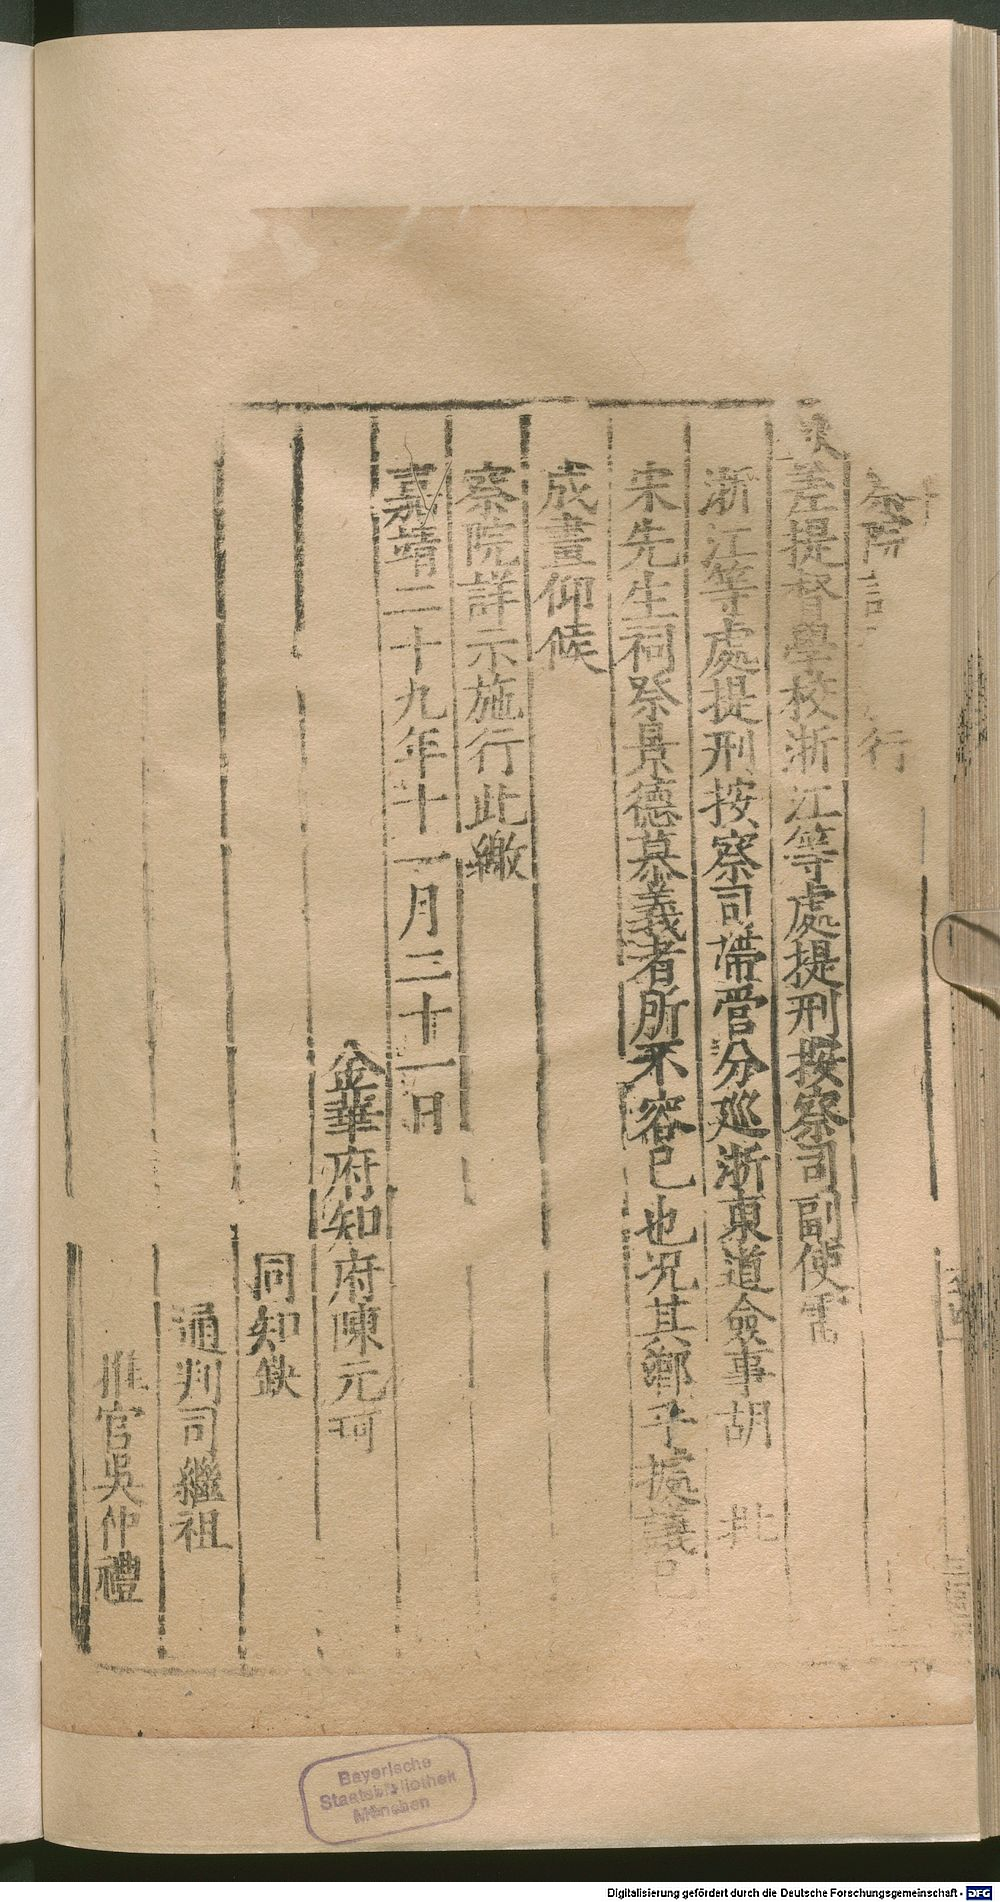 察院 行
欽差提督學校浙江等處提刑按察司副使
浙江等處提刑按察司帶管分巡浙東道僉事胡 批
宋先生祠祭景德慕義者所不容已也况其鄉乎據議已
成畫仰候
察院詳示施行此繳
嘉靖二十九年十一月三十一日
金華府知府陳元珂
同知缺
通判司繼祖
推官吳仲禮
Bayerische
Staatsbibliothek
München
Digitalisierung gefördert durch die Deutsche Forschungsgemeinschaft - DFG